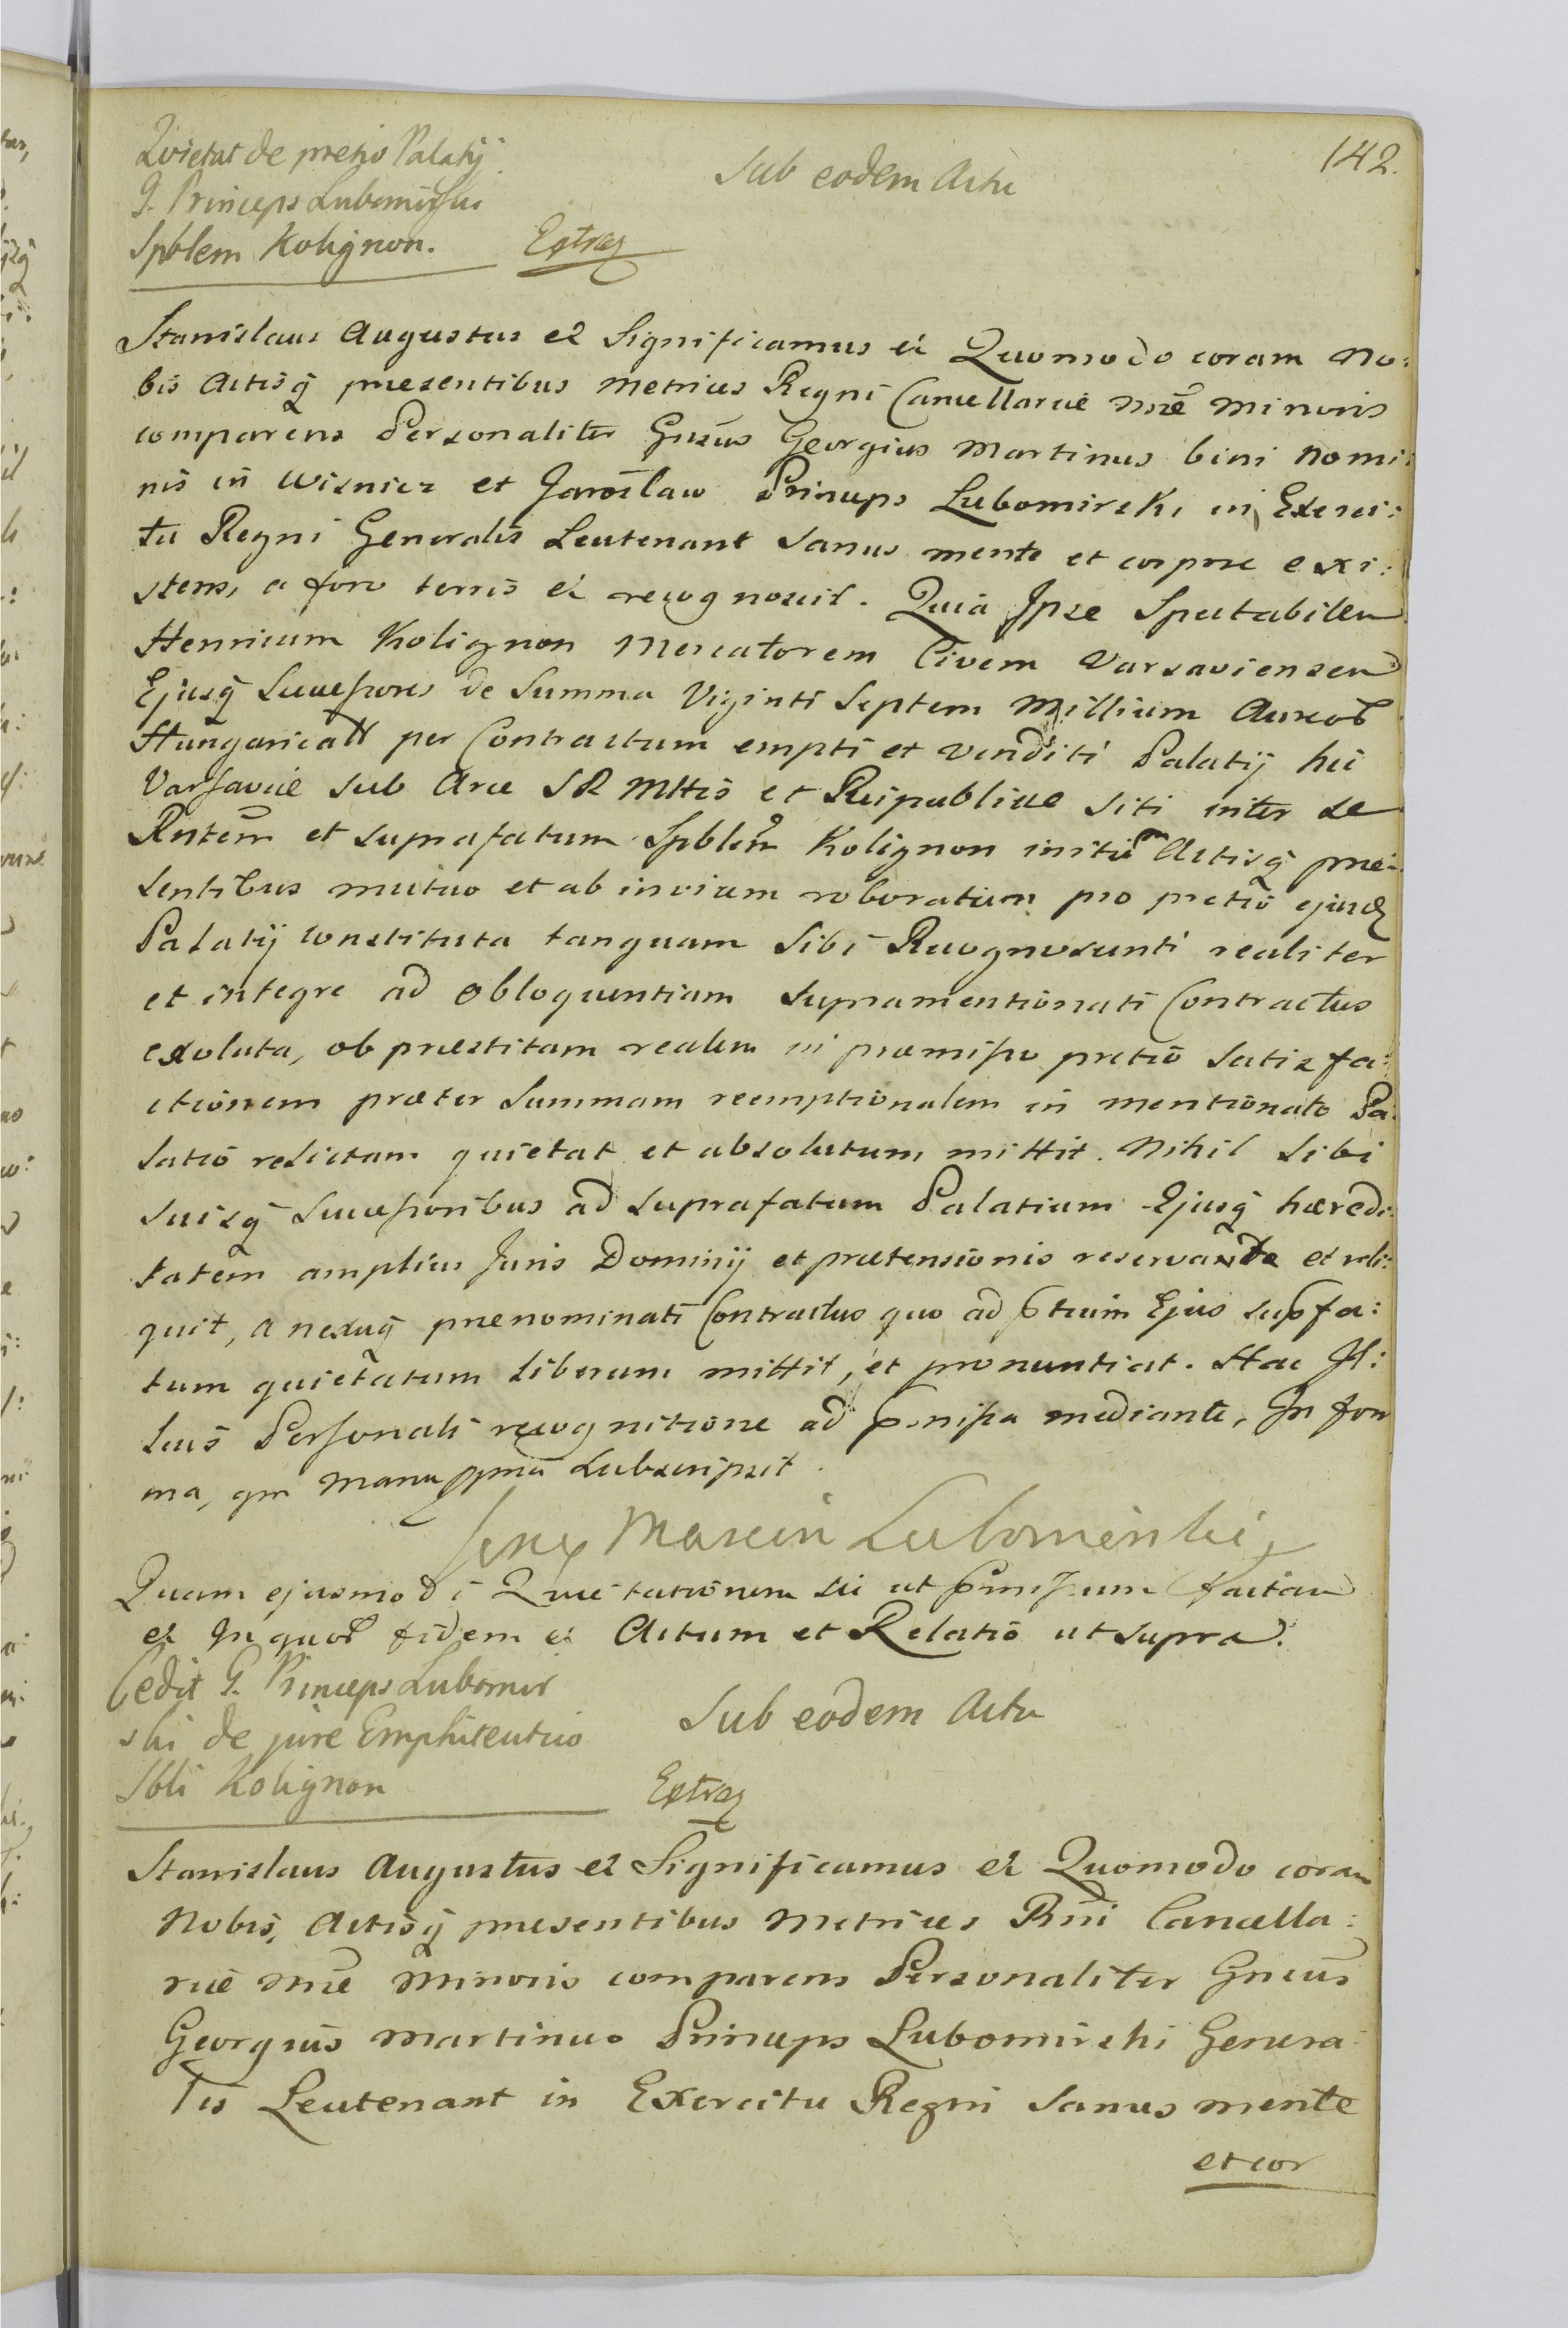 142.
Quietat de pretio Palatij
G. Princeps Lubomirski
Spblem Kolignon.
Sub eodem Actu
Extrag
Stanislaus Augustus et Significamus et Quomodo coram No:
bis Actisq presentibus Metrices Regni Cancellariæ nræ minoris
comparens Personaliter Gnsus Georgius Martinus bini nomi:
nis in Wisnicz et Jaroslaw Princeps Lubomirski in Exerci:
tu Regni Generalis Leutenant sanus mente et corpore exi:
stens, a foro terris et recognovit. Quia Ipse Spectabilem
Henricum Kolignon Mercatorem Civem Varsaviensem
Ejusq Successores de Summa Viginti Septem Millium Aureor
Hungaricall per Contractum empti et venditi Palatij hic
Varsaviæ sub Arce SR Mttis et Reipublicæ siti inter se
Rntem et suprafatum Spblem Kolignon initum Actisq præ:
sentibus mutuo et ab invicem roboratum pro pretio ejusd
Palatij constituta tanquam sibi Recognoscenti realiter
et integre ad obloquentiam supramentionati Contractus
exoluta, ob præstitam realem in præmisso pretio satisfa:
ctionem præter summam reemptionalem in mentionato Pa:
latio relictam quietat et absolutum mittit. Nihil sibi
suisq Successoribus ad suprafatum Palatium Ejusq hæredi:
tatem amplius Juris Dominij et prætensionis reservando et reli:
quit, a nexuq prenominati Contractus quo ad ptium Ejus supfa:
tum quietatum liberum mittit, et pronuntiat. Hac Il:
lius Personali recognitione ad pmissa mediante, In for
ma, qm Manu ppria subscripsit.
Jerzy Marcin Lubomirski
Quam ejusmodi Quietationem sic ut pmissum factam
et In quor fidem et Actum et Relatio ut supra.
Cedit G. Princeps Lubomir
ski de jure Emphiteutico
Sbli Kolignon
Sub eodem Actu
Extrag
Stanislaus Augustus et Significamus et Quomodo coram
Nobis, Actisq presentibus Metrices Rni Cancella:
riæ nræ Minoris comparens Personaliter Gnsus
Georgius Martinus Princeps Lubomirski Genera
lis Leutenant in Exercitu Regni sanus mente
et cor